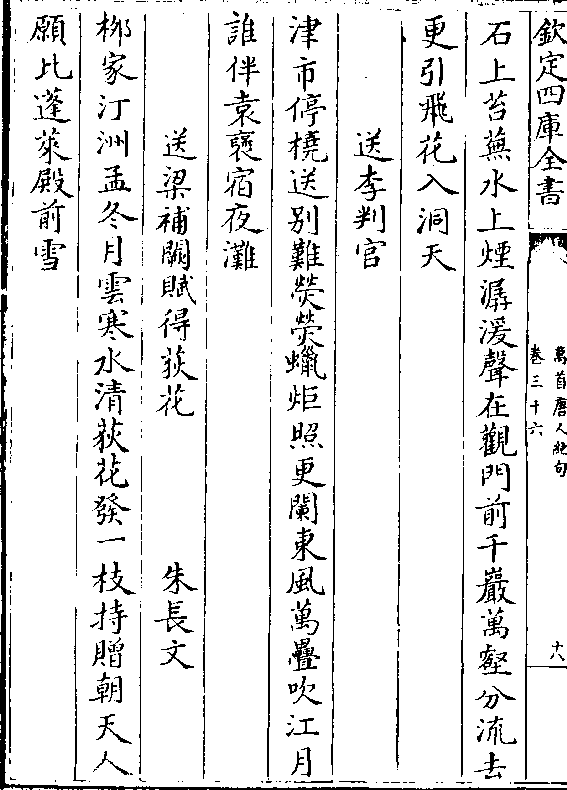 欽定四庫全書
萬首唐人絶句
卷三十六
十八
石上苔蕪水上煙潺湲聲在觀門前千巖萬壑分流去
更引飛花入洞天
送李判官
津市停橈送别難熒熒蠟炬照更闌東風萬疊吹江月
誰伴袁褒宿夜灘
送梁補闕賦得荻花
朱長文
栁家汀洲孟冬月雲寒水清荻花發一枝持贈朝天人
願比蓬萊殿前雪